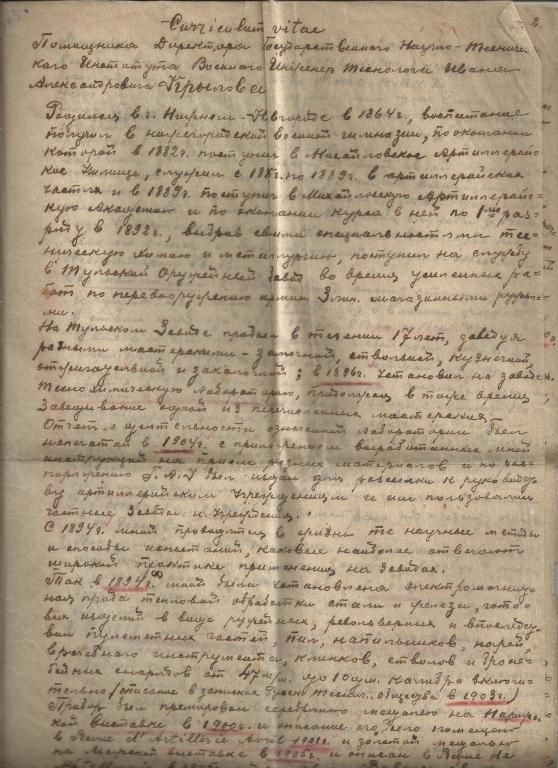 2.
Curriculum vitae
Помощника Директора Государственного Научно-Техниче
ского Института Военного Инженер Технолога Ивана
Александровича Крылова
Родился в г. Нижнем-Новгороде в 1864 г., воспитание
получил в нижегородской военной гимназии, по окончании
которой в 1882 г. поступил в Михайловское Артиллерий
ское Училище, служил с по 1889 г. в артиллерийских
частях и в 1889 г. поступил в Михайловскую Артиллерий=
скую Академию и по окончании курса в ней по 1му раз=
ряду в 1892 г., избрав своими специальностями тех
ническую химию и металлургию, поступил на службу
в Тульский Оружейный завод во время усиленных ра=
бот по перевооружению армии 3 лин. магазинными ружья
ми.
На Тульском Заводе пробыл в течении 17 лет, заведуя
разными мастерскими - замочной, ствольной, кузнечной
и закалочной; в 1896 г. установил на заводе
Технохимическую лабораторию, в тоже время
Заведывание одной из перечисленных мастерских.
Отчет о деятельности означенной лаборатории был
напечатан в 1904 г. с приложением выработанных мной
инструкций на прием разных материалов и по рас=
поряжению Г.А.У. был издан для рассылки к руководст
ву артиллерийским учреждениям и им пользовались
частные Заводы и Учреждения.
С 1894 г. мной проводились в жизнь те научные методы
и способы испытаний, каковые наиболее отвечают
широкой практике применения на заводах.
Так в 1894 г. мной была установлена
тепловой обработки стали и железа, гото=
вых изделий в виде ружейных, револьверных и впоследст
вии пулеметных частей, пил, напильников, ножей,
врачебного инструмента, клинков, стволов и броне=
бойных снарядов от 47 м/м. до 10 дм. калибра включи=
тельно (описание в записках Русск. Технич. общества в 1903 г.)
Прибор был премирован серебряной медалью на Париж=
ской выставке в 1900 г. и описание его было помещено
в Revue d'Artillerie Avril 1901 г. и золотой медалью
на выставке в 1905 г. и описан в Revue de